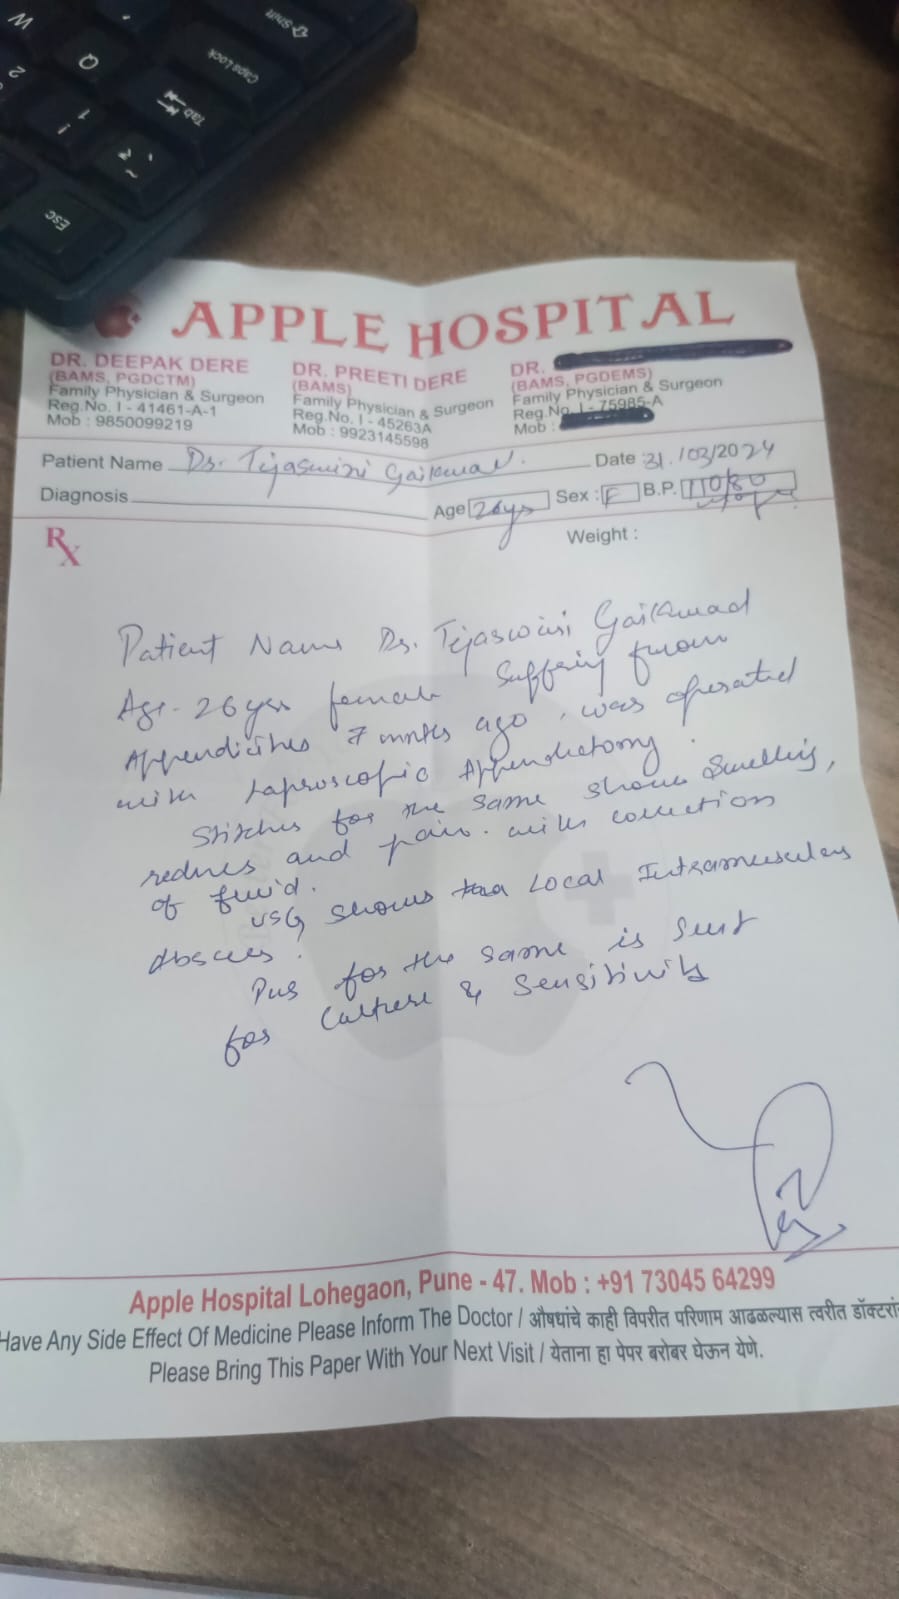 APPLE HOSPITAL
DR. DEEPAK DERE
(BAMS, PGDCTM)
Family Physician & Surgeon
Reg.No. I - 41461-A-1
Mob : 9850099219
DR. PREETI DERE
(BAMS)
Family Physician & Surgeon
Reg.No. I - 45263A
Mob : 9923145598
DR.
(BAMS, PGDEMS)
Family Physician & Surgeon
Reg.No. I - 75985-A
Mob :
Patient Name Dr. Tejaswini Gaikwad. Date 31/03/2024
Diagnosis Age 26yrs Sex : F B.P. 110/80
Weight :
Rx
Patient Name Dr. Tejaswini Gaikwad
Age - 26 yrs female suffering from
Appendicites 7 months ago, was operated
with Laproscopic Appendectomy.
Stitches for the same shows Swelling,
rednes and pain. with collection
of fluid.
USG shows Local Intramuscular
Abscess.
Pus for the same is sent
for Culture & Sensitivity
Apple Hospital Lohegaon, Pune - 47. Mob : +91 73045 64299
Have Any Side Effect Of Medicine Please Inform The Doctor / औषधांचे काही विपरीत परिणाम आढळल्यास त्वरीत डॉक्टरां
Please Bring This Paper With Your Next Visit / येताना हा पेपर बरोबर घेऊन येणे.
Esc
Tab
Caps Lock
Shift
Q
W
1
2